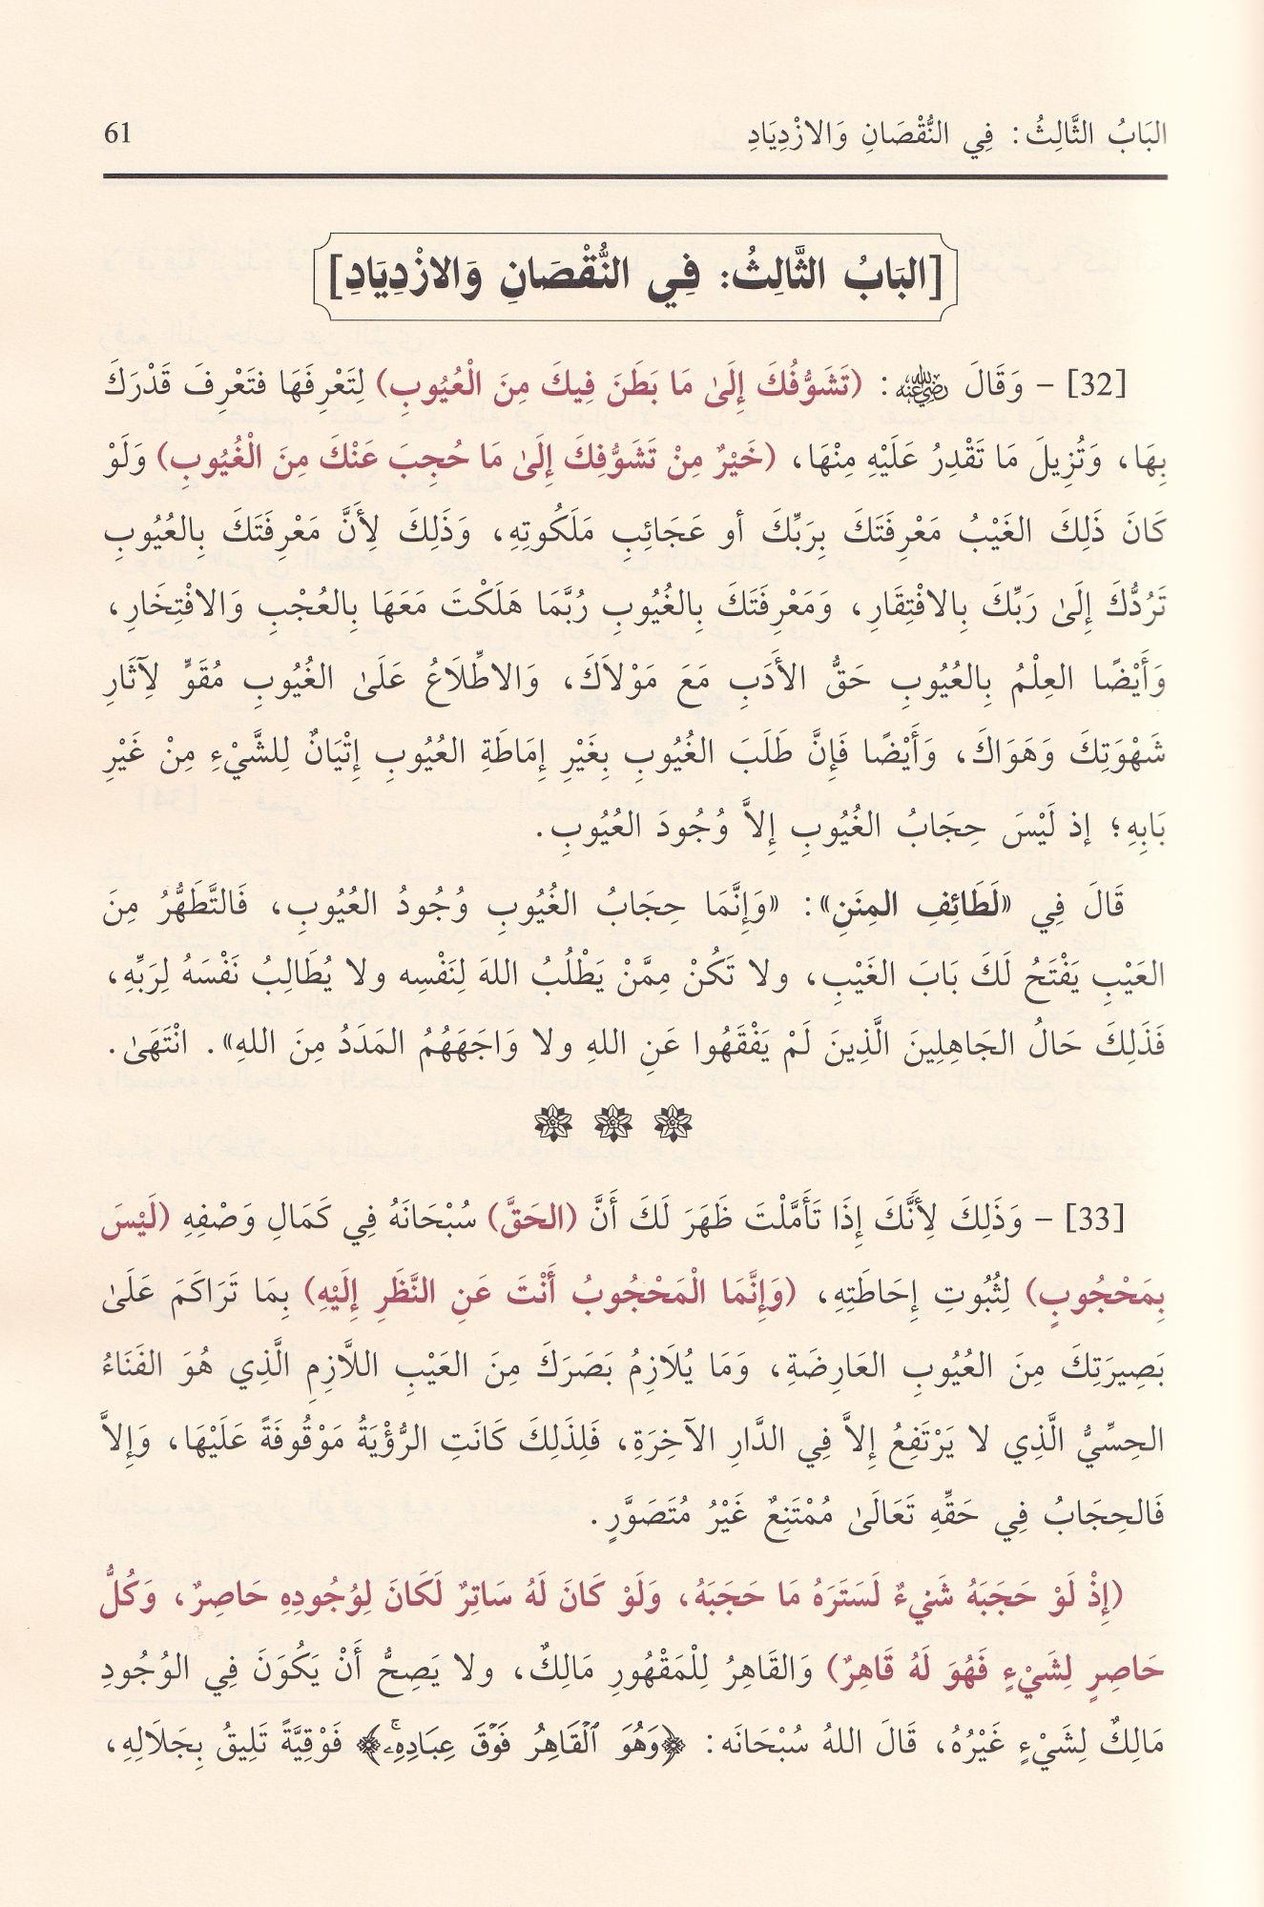 البَابُ الثَّالِثُ: فِي النُّقْصَانِ وَالازْدِيَادِ 61
[البَابُ الثَّالِثُ: فِي النُّقْصَانِ وَالازْدِيَادِ]
[32] - وَقَالَ رضي الله عنه: (تَشَوُّفُكَ إِلَىٰ مَا بَطَنَ فِيكَ مِنَ الْعُيُوبِ) لِتَعْرِفَهَا فتَعْرِفَ قَدْرَكَ
بِهَا، وَتُزِيلَ مَا تَقْدِرُ عَلَيْهِ مِنْهَا، (خَيْرٌ مِنْ تَشَوُّفِكَ إِلَىٰ مَا حُجِبَ عَنْكَ مِنَ الْغُيُوبِ) وَلَوْ
كَانَ ذَلِكَ الغَيْبُ مَعْرِفَتَكَ بِرَبِّكَ أو عَجَائِبِ مَلَكُوتِهِ، وَذَلِكَ لِأَنَّ مَعْرِفَتَكَ بِالعُيُوبِ
تَرُدُّكَ إِلَىٰ رَبِّكَ بِالافْتِقَارِ، وَمَعْرِفَتَكَ بِالغُيُوبِ رُبَّمَا هَلَكْتَ مَعَهَا بِالعُجْبِ وَالافْتِخَارِ،
وَأَيْضًا العِلْمُ بِالعُيُوبِ حَقُّ الأَدَبِ مَعَ مَوْلاَكَ، وَالاطِّلَاعُ عَلَىٰ الغُيُوبِ مُقَوٍّ لِآثَارِ
شَهْوَتِكَ وَهَوَاكَ، وَأَيْضًا فَإِنَّ طَلَبَ الغُيُوبِ بِغَيْرِ إِمَاطَةِ العُيُوبِ إِتْيَانٌ لِلشَّيْءِ مِنْ غَيْرِ
بَابِهِ؛ إذ لَيْسَ حِجَابُ الغُيُوبِ إِلاَّ وُجُودَ العُيُوبِ.
قَالَ فِي «لَطَائِفِ المِنَنِ»: «وَإِنَّمَا حِجَابُ الغُيُوبِ وُجُودُ العُيُوبِ، فَالتَّطَهُّرُ مِنَ
العَيْبِ يَفْتَحُ لَكَ بَابَ الغَيْبِ، ولا تَكُنْ مِمَّنْ يَطْلُبُ اللهَ لِنَفْسِه ولا يُطَالِبُ نَفْسَهُ لِرَبِّهِ،
فَذَلِكَ حَالُ الجَاهِلِينَ الَّذِينَ لَمْ يَفْقَهُوا عَنِ اللهِ ولا وَاجَهَهُمُ المَدَدُ مِنَ اللهِ». انْتَهَىٰ.
[33] - وَذَلِكَ لِأَنَّكَ إِذَا تَأَمَّلْتَ ظَهَرَ لَكَ أَنَّ (الحَقَّ) سُبْحَانَهُ فِي كَمَالِ وَصْفِهِ (لَيْسَ
بِمَحْجُوبٍ) لِثُبُوتِ إِحَاطَتِهِ، (وَإِنَّمَا الْمَحْجُوبُ أَنْتَ عَنِ النَّظَرِ إِلَيْهِ) بِمَا تَرَاكَمَ عَلَىٰ
بَصِيرَتِكَ مِنَ العُيُوبِ العَارِضَةِ، وَمَا يُلَازِمُ بَصَرَكَ مِنَ العَيْبِ اللاَّزِمِ الَّذِي هُوَ الفَنَاءُ
الحِسِّيُّ الَّذِي لا يَرْتَفِعُ إِلاَّ فِي الدَّارِ الآخِرَةِ، فَلِذَلِكَ كَانَتِ الرُّؤْيَةُ مَوْقُوفَةً عَلَيْهَا، وَإِلاَّ
فَالحِجَابُ فِي حَقِّهِ تَعَالَىٰ مُمْتَنِعٌ غَيْرُ مُتَصَوَّرٍ.
(إِذْ لَوْ حَجَبَهُ شَيْءٌ لَسَتَرَهُ مَا حَجَبَهُ، وَلَوْ كَانَ لَهُ سَاتِرٌ لَكَانَ لِوُجُودِهِ حَاصِرٌ، وَكُلُّ
حَاصِرٍ لِشَيْءٍ فَهُوَ لَهُ قَاهِرٌ) وَالقَاهِرُ لِلْمَقْهُورِ مَالِكٌ، ولا يَصِحُّ أَنْ يَكُونَ فِي الوُجُودِ
مَالِكٌ لِشَيْءٍ غَيْرُهُ، قَالَ اللهُ سُبْحَانَه: ﴿وَهُوَ ٱلْقَاهِرُ فَوْقَ عِبَادِهِۦ﴾ فَوْقِيَّةً تَلِيقُ بِجَلَالِهِ،